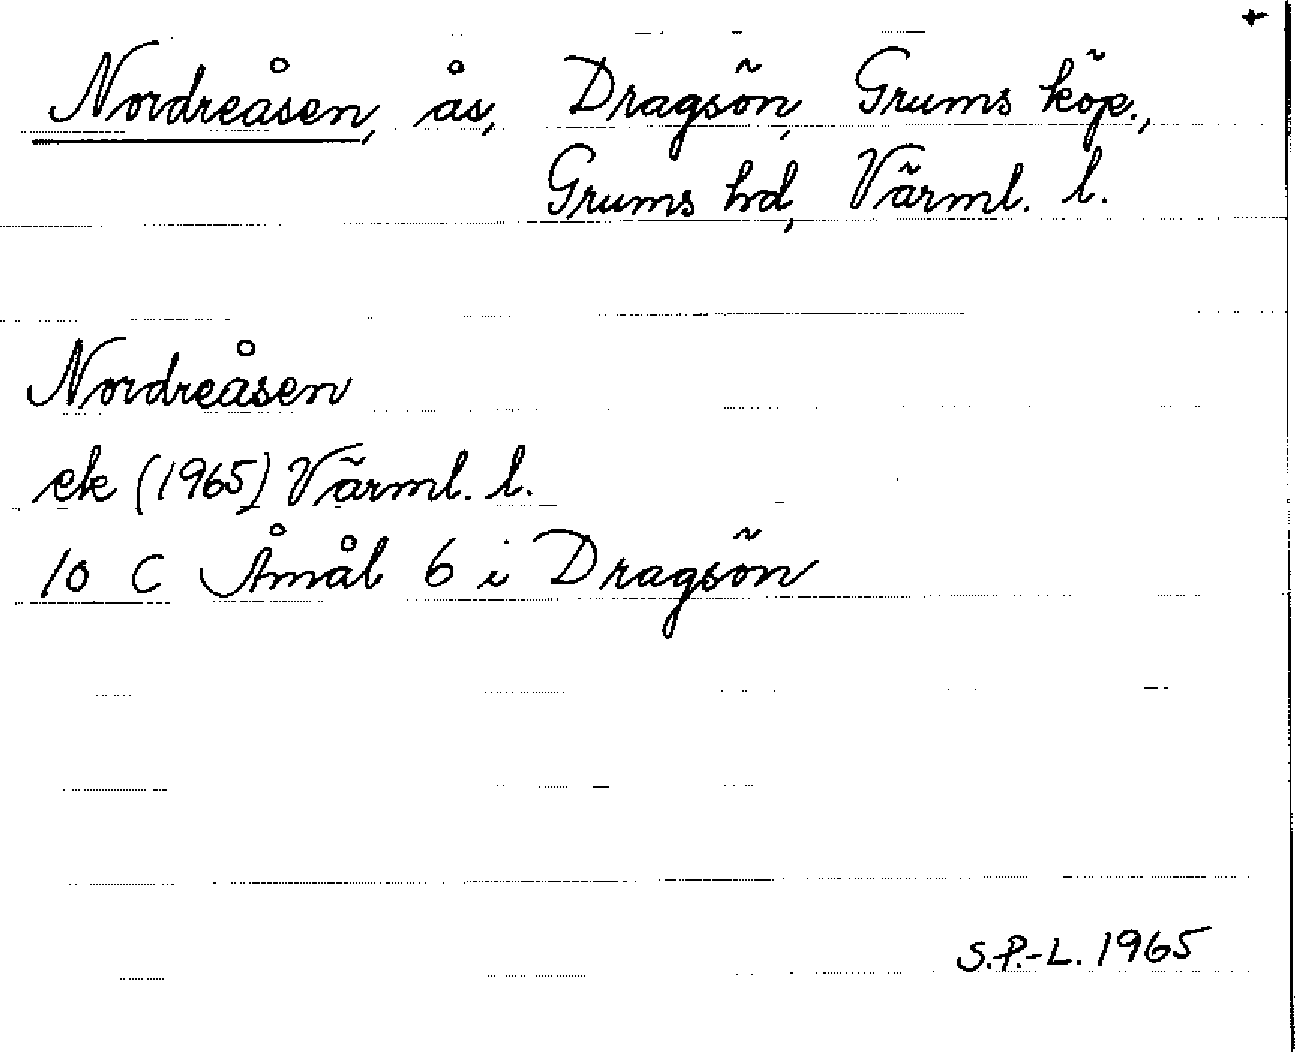 +
Nordreåsen, ås, Dragsön, Grums köp.,
Grums hd, Värml. l.
Nordreåsen
ek (1965) Värml. l.
10 C Åmål 6 i Dragsön
S.P.-L. 1965